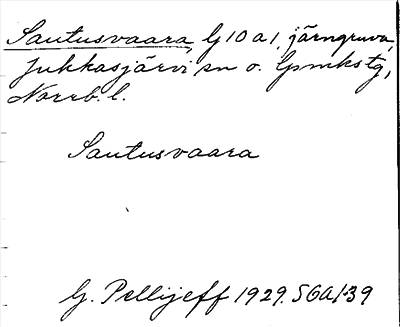 Sautusvaara, G 10 a 1, järngruva,
Jukkasjärvi sn o. Gpmkstg,
Norrb. l.
Sautusvaara
G. Pellijeff 1929. SOA 1:39